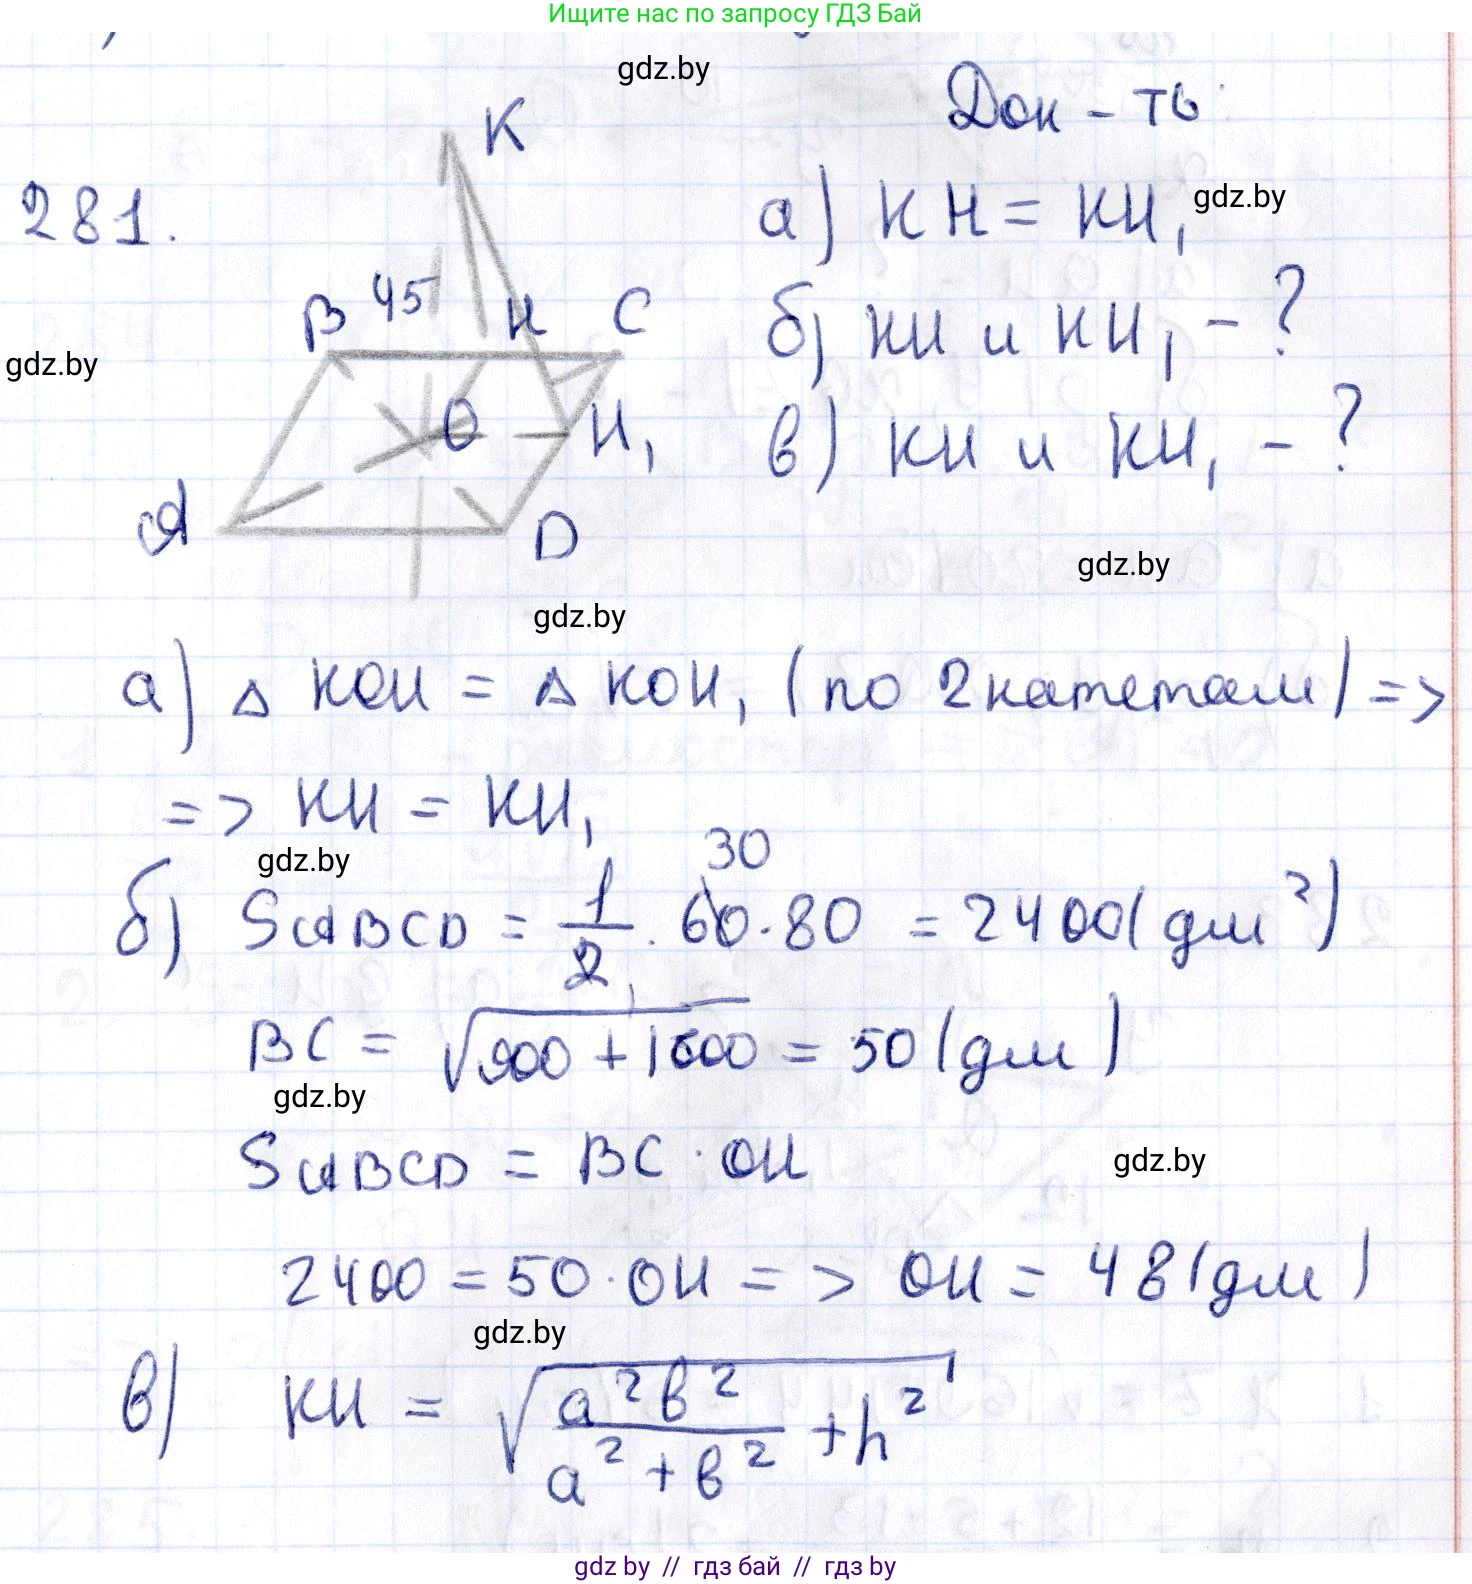 Ищите нас по запросу ГДЗ Бай
gdz.by
Док-ть:
281.
K
B 45 H C
O H₁
A D
а) KH = KH₁
gdz.by
б) KH и KH₁ - ?
gdz.by
в) KH и KH₁ - ?
gdz.by
gdz.by
а) △ KOH = △ KOH₁ (по 2 катетам) =>
=> KH = KH₁
gdz.by
30
б) SABCD = 1/2 · 60 · 80 = 2400 (дм²)
BC = √900 + 1600 = 50 (дм)
gdz.by
SABCD = BC · OH
gdz.by
2400 = 50 · OH => OH = 48 (дм)
gdz.by
в) KH = √a²b²/a²+b² + h²
gdz.by // гдз бай // гдз by